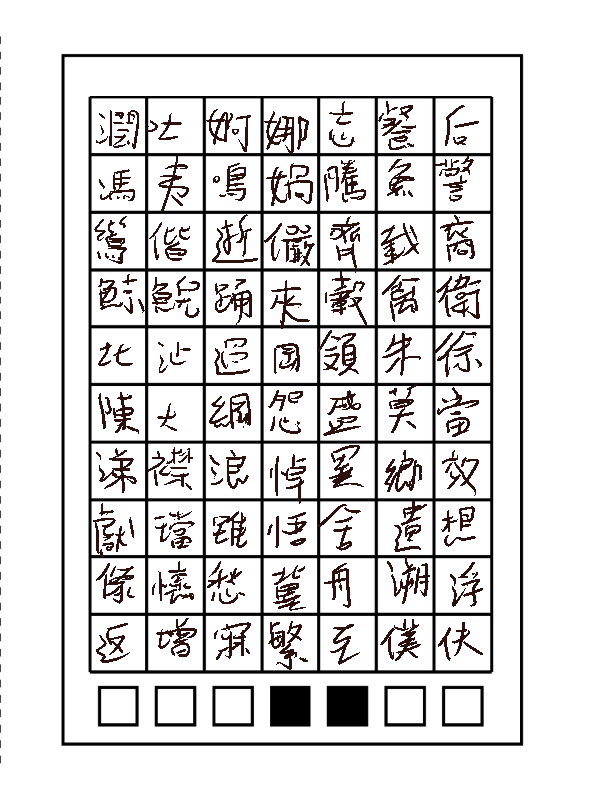 潤吐婀娜忘餐后
馮夷鳴媧騰魚警
鸞偕逝儼齊載裔
鯨鯢踊夾轂禽衛
北沚過岡領朱徐
陳大綱怨盛莫當
涕襟浪悼異鄉效
獻璫雖悟舍遺想
像懷愁冀舟溯浮
返增寐繁至僕伕